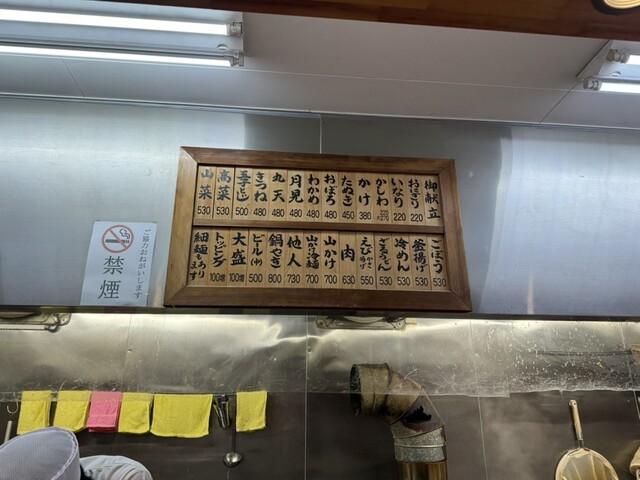 御献立
おにぎり 220
いなり 220
かしわ
かけ 380
たぬき 450
おぼろ 480
わかめ 480
月見 480
丸天 480
きつね 480
玉子とじ 500
高菜 530
山菜 530
ごぼう 530
釜揚げ 530
冷めん 530
ざるうどん 530
えび 550
肉 630
山かけ 700
山かけ冷麺 700
他人 730
鍋やき 800
ビール(中) 500
大盛 100増
トッピング 100増
細麺もあります
ご協力おねがいします
禁煙